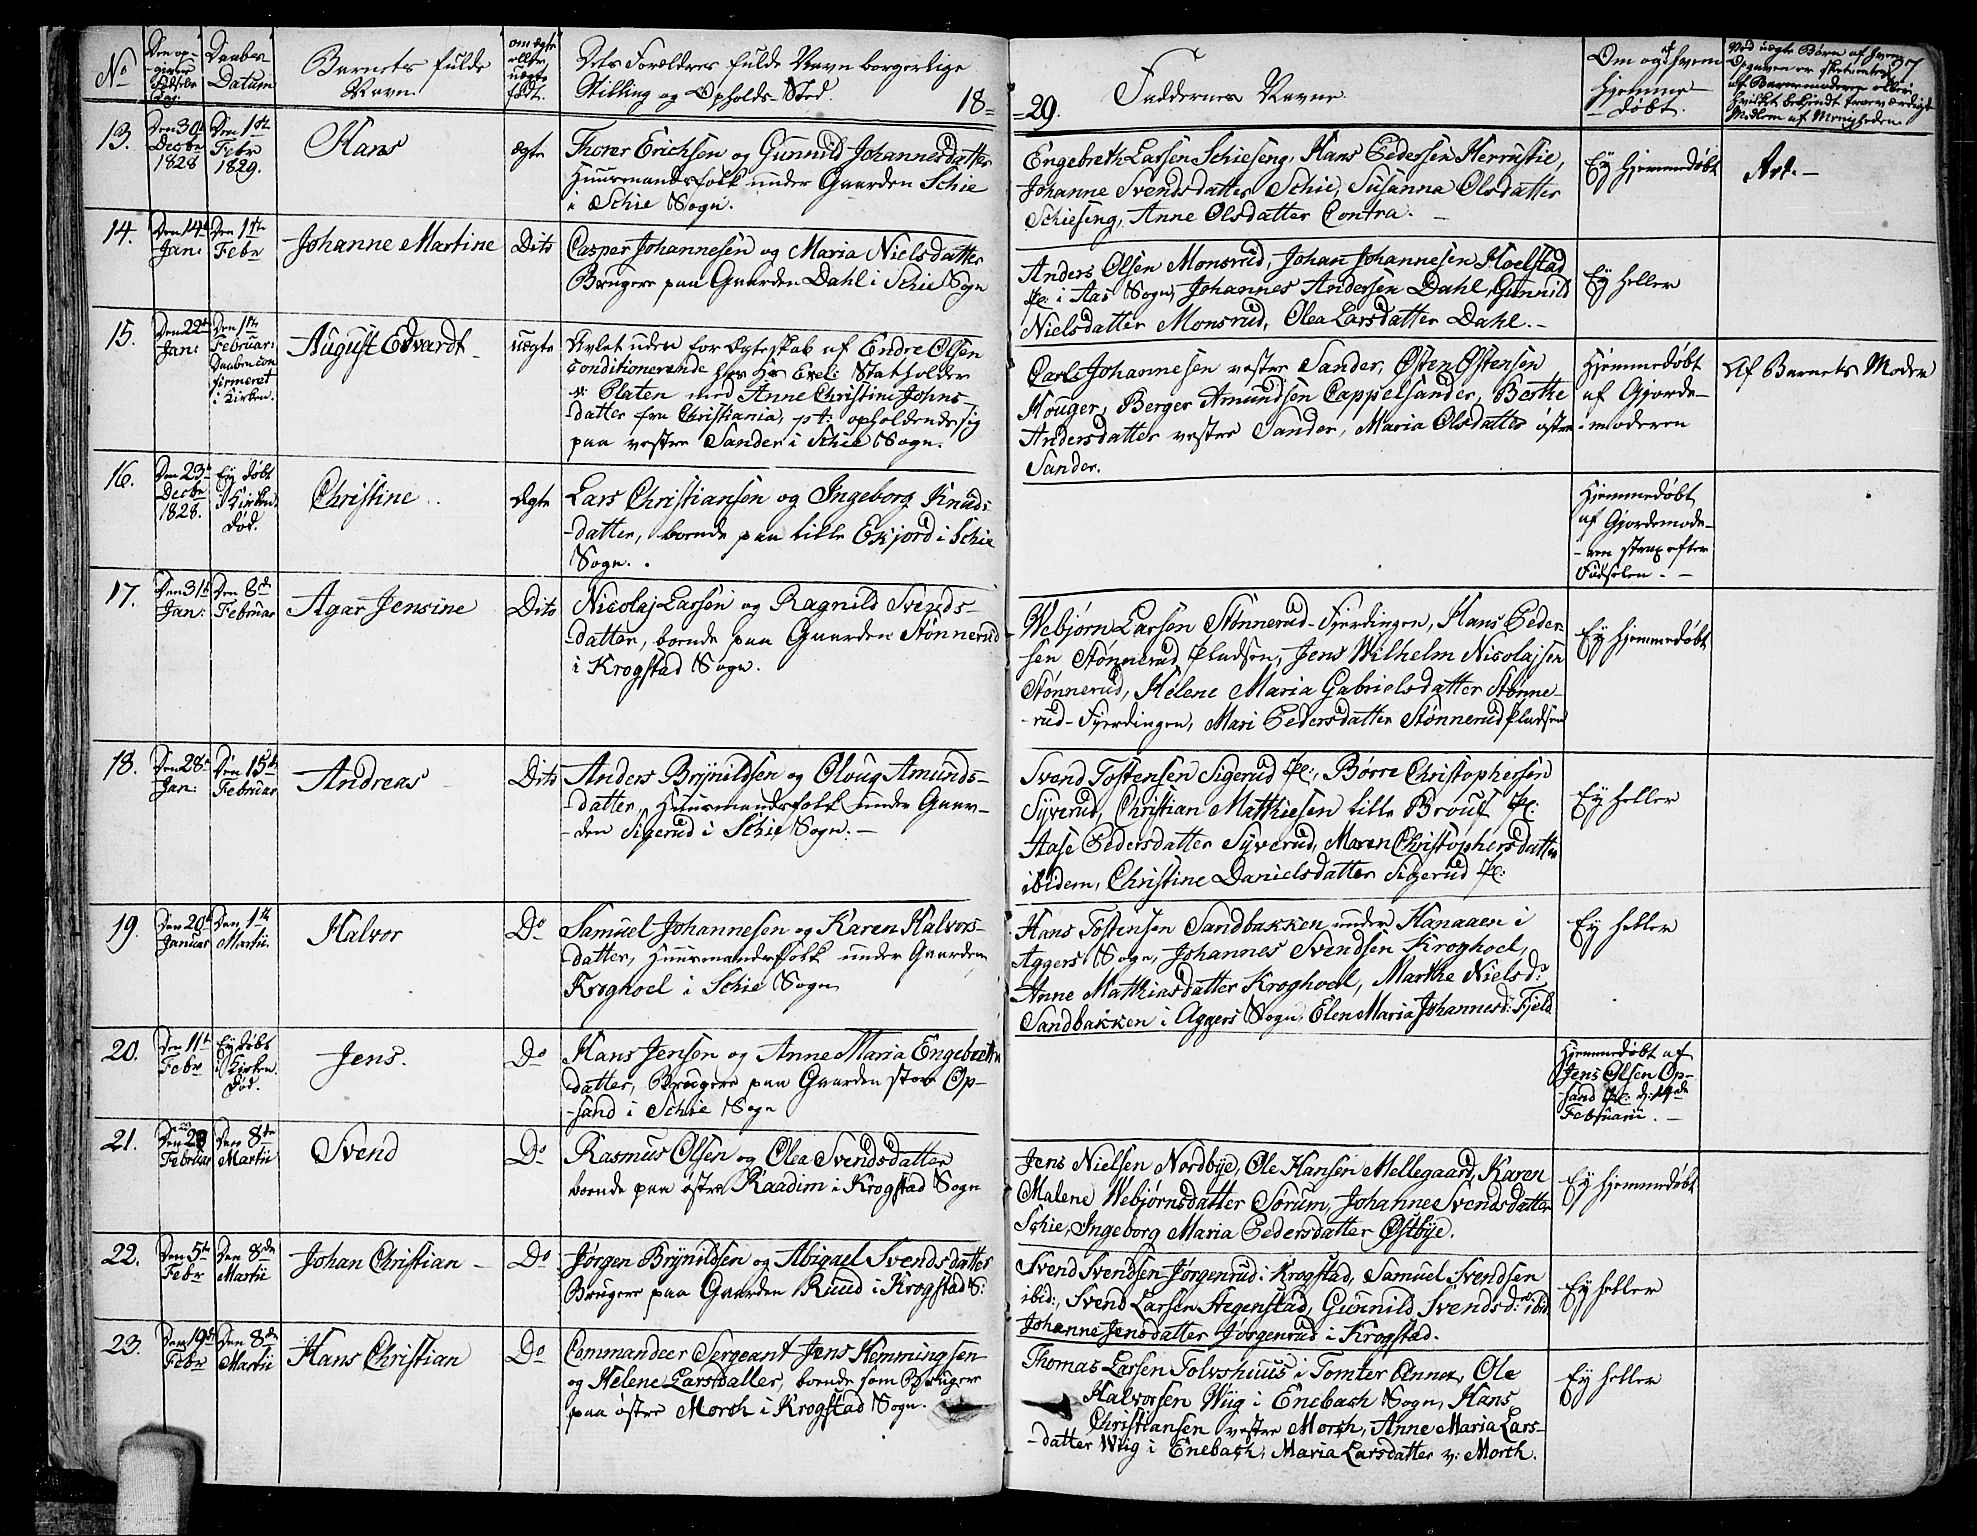 No
Den op-
givne
Fødsels
Dag.
Daabens
Datum
Barnets fulde
Navn
om ægte
eller
uægte
født.
Dets Forældres fulde Navn borgerlige
Stilling og Opholds-Sted.
18=
=29.
Faddernes Navne
Om og af hvem
hjemme-
døbt.
Ved uægte Børn af hvem
Opgaven er
af Barnemoderen eller
hvilket bekjendt troeværdigt
Medlem af Menigheden
97
13.
Den 30te
Decbr
1828
Den 1ste
Febr
1829.
Hans
ægte
Thorer Erichsen og Gunnild Johannesdatter
Huusmandsfolk under Gaarden Schie
i Schie Sogn.
Engebreth Larsen Schieseng, Hans Pedersen
Johanne Svendsdatter Schie, Susanna Olsdatter
Schieseng, Anne Olsdatter Contra. -
Ey hjemmedøbt
14.
Den 14de
Jan:
Den 1ste
Febr
Johanne Martine
Dito
Casper Johannesen og Maria Nielsdatter
Brugere paa Gaarden Dahl i Schie Sogn
Anders Olsen Monsrud, Johan Johannesen Hoelstad
i Aas Sogn, Johannes Andersen Dahl, Gunnild
Nielsdatter Monsrud, Olea Larsdatter Dahl. -
Ey heller
15.
Den 22de
Jan:
Den 1ste
Februar:
Daaben con
firmeret
i Kirken.
August Edvardt
uægte
Avlet uden for Ægteskab af Endre Olsen
conditionerende hos Hr Exel: Statholder
v: Platen med Anne Christine Johns-
datter fra Christiania, pt. opholdende sig
paa vestre Sander i Schie Sogn.
Carl Johannesen vestre Sander, Østen Østensen
Houger, Berger Amundsen Cappelsander, Berthe
Andersdatter vestre Sander, Maria Olsdatter østre
Sander.
Hjemmedøbt
af Gjorde-
moderen
Af Barnets Moder
16.
Den 23de
Decbr
1828.
Ey døbt
i Kirken.
Død.
Christine
Ægte
Lars Christiansen og Ingeborg Knuds-
-datter, boende paa lille Eskjord i Schie
Sogn.
Hjemmedøbt
af Gjordemode-
-ren strax efter
Fødselen. -
17.
Den 31te
Jan:
Den 8de
Februar
Agar Jensine
Dito
Nicolaj Larsen og Ragnild Svends-
datter, boende paa Gaarden Stønnerud
i Krogstad Sogn.
Webjørn Larsen Stønnerud-Fjerdingen, Hans Peder-
sen Stønnerud Pladsen, Jens Wilhelm Nicolajsen
Stønnerud, Helene Maria Gabrielsdatter Stønne-
-rud-Fjerdingen, Mari Pedersdatter Stønnerud Pladsen
Ey hjemmedøbt
18.
Den 28de
Jan:
Den 15de
Februar
Andreas
Dito
Anders Brynildsen og Oloug Amunds-
-datter, Huusmandsfolk under Gaar-
-den Sigerud i Schie Sogn. -
Svend Tostensen Sigerud Pl:, Børre Christophersen
Syverud, Christian Mathiesen lille Pl:
Aase Pedersdatter Syverud, Maren Christophersdatter
ibidem, Christine Danielsdatter Sigerud Pl:
Ey heller
19.
Den 20de
Januar
Den 1ste
Martii
Halvor
Do
Samuel Johannesen og Karen Halvors-
datter, Huusmandsfolk under Gaarden
Kroghoel i Schie Sogn
Hans Tostensen Sandbakken under Hanaaen i
Aggers Sogn, Johannes Svendsen Kroghoel,
Anne Mathiasdatter Kroghoel, Marthe Nielsd:
Sandbakken i Aggers Sogn, Elen Maria Johannesd: Fjeld
Ey heller
20.
Den 11te
Febr
Ey døbt
i Kirken
Død.
Jens.
Do
Hans Jensen og Anne Maria Engebreths
datter, Brugere paa Gaarden store Op-
-sand i Schie Sogn
Hjemmedøbt af
Jens Olsen Op-
sand Pl: d:
Februarii. -
21.
Februar
Den 8de
Martii
Svend
Do
Rasmus Olsen og Olea Svendsdatter
boende paa østre Raadim i Krogstad Sogn
Jens Nielsen Nordbye, Ole Hansen Mellegaard, Karen
Malene Webjørnsdatter Sørum, Johanne Svendsdatter
Schie, Ingeborg Maria Pedersdatter Østbye.
Ey hjemmedøbt
22.
Den 5te
Febr
Den 8de
Martii
Johan Christian -
Do
Jørgen Brynildsen og Abigael Svendsdatter
Brugere paa Gaarden Ruud i Krogstad S:
Svend Svendsen Jørgenrud i Krogstad, Samuel Svendsen
ibid:, Svend Larsen Stegenstad, Gunnild Svendsd: ibid.
Johanne Jensdatter Jørgenrud i Krogstad.
Ey heller
23.
Den 19de
Febr
Den 8de
Martii
Hans Christian
Do
Commandeer Sergeant Jens Hemmingsen
og Helene Larsdatter, boende som Brugere
paa østre Morch i Krogstad Sogn.
Thomas Larsen Tolvshuus i Tomter Annex, Ole
Halvorsen Wiig i Enebach Sogn, Hans
Christiansen vestre Morch, Anne Maria Lars-
-datter Wiig i Enebach, Maria Larsdatter v: Morch.
Ey heller